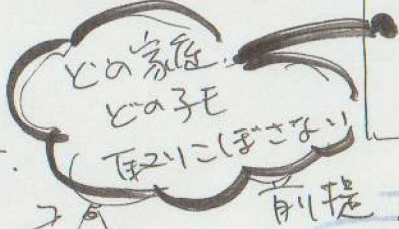 どの家庭
どの子モ
取りこぼさない
前提